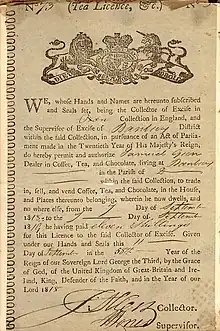 No 73 (Tea Licence, &c.)
WE, whose Hands and Names are hereunto subscribed
and Seals set, being the Collector of Excise of
Oxon Collection in England, and
the Supervisor of Excise of Banbury District
within the said Collection, in pursuance of an Act of Parlia-
ment made in the Twentieth Year of His Majesty's Reign,
do hereby permit and authorize Green
Dealer in Coffee, Tea, and Chocolate, living at Banbury
in the Parish of
within the said Collection, to trade
in, sell, and vend Coffee, Tea, and Chocolate, in the House,
and Places thereunto belonging, wherein he now dwells, and
no where else, from the Day of
to the Day of
he having paid Eleven Shillings
for this Licence to the said Collector of Excise. Given
under our Hands and Seals this
Day of in the Year of the
Reign of our Sovereign Lord George the Third, by the Grace
of God, of the United Kingdom of Great-Britain and Ire-
land, King, Defender of the Faith, and in the Year of our
Lord 18
Collector.
Supervisor.